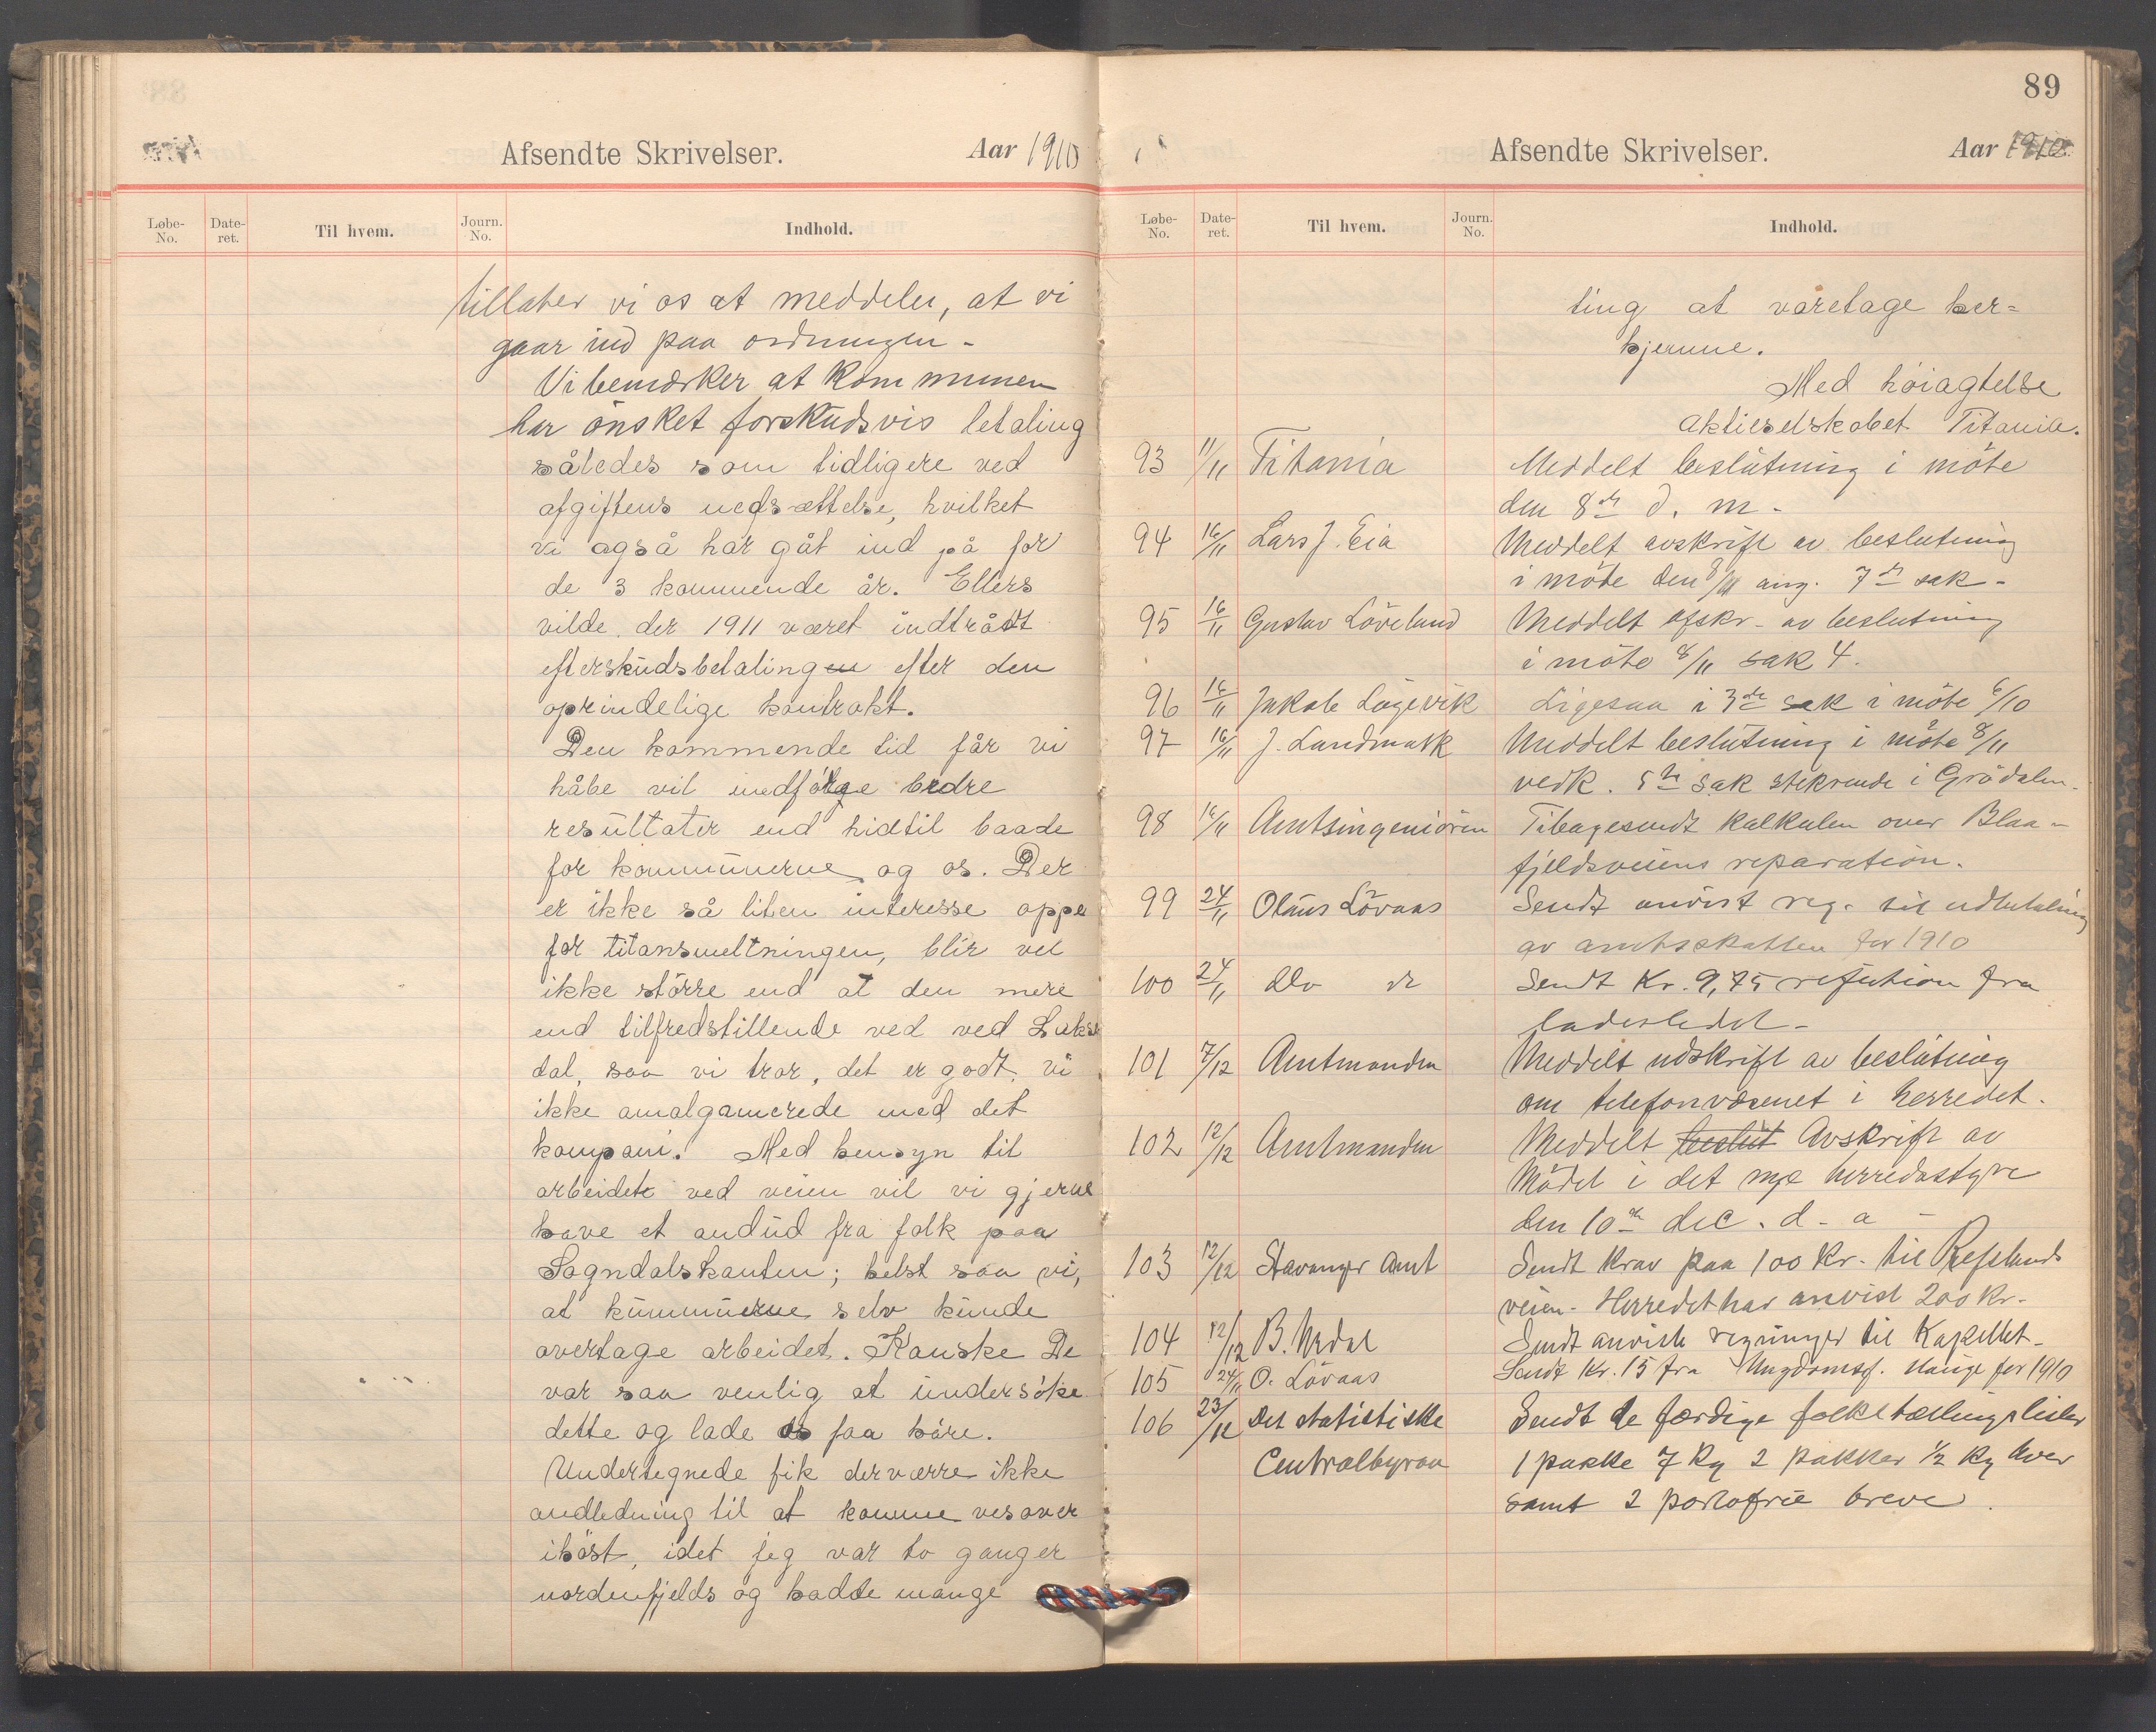 Afsendte Skrivelser. Aar 1910
Løbe-No. Date-ret. Til hvem. Journ. No. Indhold.
tillater vi os at meddeler, at vi
gaar ind paa ordningen -
Vi bemærker at kommunen
har ønsket forskudsvis betaling
således som tidligere ved
afgiftens nedsættelse, hvilket
vi også har gåt ind på for
de 3 kommende år. Ellers
vilde der 1911 været indtrådt
efterskudsbetalingen efter den
oprindelige kontrakt.
Den kommende tid får vi
håbe vil medfølge bedre
resultater end hidtil baade
for kommunerne og os. Der
er ikke så liten interesse oppe
for titansmeltningen, blir vel
ikke større end at den mere
end tilfredstillende ved ved Lukse
dal, saa vi tror, det er godt, vi
ikke amalgamerede med det
kompani. Med hensyn til
arbeidet ved veien vil vi gjerne
have et anbud fra folk paa
Sogndalskanten; helst saa vi,
at kummunerne selv kunde
overtage arbeidet. Kanske De
var saa venlig at undersøke
dette og lade os faa høre.
Undertegnede fik derværre ikke
andledning til at komme vesover
ihøst, idet jeg var to ganger
nordenfjelds og hadde mange
89
Afsendte Skrivelser. Aar 1910
Løbe-No. Date-ret. Til hvem. Journ. No. Indhold.
ting at varetage her=
hjemme.
Med høiagtelse
Aktieselskabet Titania.
93 11/11 Titania Meddelt beslutning i møte
den 8de d. m -
94 16/11 Lars J. Eia Meddelt avskrift av beslutning
i møte den 8/11 ang. 7de sak -
95 16/11 Gustav Løveland Meddelt afskr - av beslutning
i møte 8/11 sak 4.
96 16/11 Jakob Løgevik Ligesaa i 3de sak i møte 6/10
97 16/11 J. Landmark Meddelt beslutning i møte 8/11
vedk. 5te sak i Grødalen.
98 16/11 Amtsingeniøren Tilbagesendt kalkulen over Blaa-
fjeldsveiens reparation.
99 24/11 Olaus Løvaas Sendt anvist reg. til udbetaling
av amtsskatten for 1910
100 24/11 Do do Sendt Kr. 9,75 refution fra
ladestedet -
101 7/12 Amtmanden Meddelt udskrift av beslutning
om telefonvæsenet i herredet.
102 12/12 Amtmanden Meddelt beslut Avskrift av
Mødet i det nye herredsstyre
den 10de dec. d - a -
103 12/12 Stavanger Amt Sendt krav paa 100 Kr. til Refslands
veien - Herredet har anvist 200 Kr -
104 12/12 B. Urdal Sendt anviste regninger til Kapellet -
105 24/11 O. Løvaas Sendt Kr. 15 fra Ungdomsf. Hauge for 1910
106 23/12 Det statistiske Sendt de færdige folketællingslister
Centralbyraa 1 pakke 7 kg 2 pakker 1/2 kg hver
samt 2 portofrie breve.